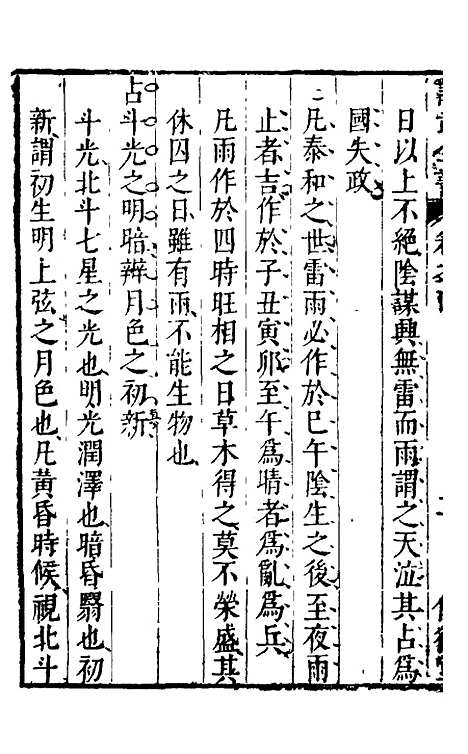 日以上不絕陰謀興無雷而雨謂之天泣其占爲
國失政
凡泰和之世雷雨必作於巳午陰生之後至夜雨
止者吉作於子丑寅卯至午爲晴者爲亂爲兵
凡雨作於四時旺相之日草木得之莫不榮盛其
休囚之日雖有雨不能生物也
占斗光之明暗辨月色之初新
斗光北斗七星之光也明光潤澤也暗昏翳也初
新謂初生明上弦之月色也凡黃昏時候視北斗